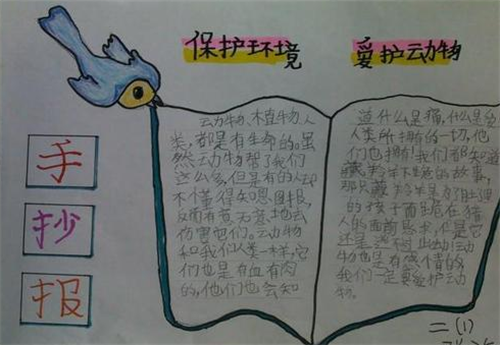 保护环境 爱护动物
手
抄
报
动物、植物、人
类，都是有生命的。虽
然动物帮了我们
这么多，但是有的人却
不懂得知恩图报，
反而有意无意地去
伤害它们。动物
和我们人类一样，它
们也是有血有肉
的，他们也会知
道什么是痛，什么是
人类所拥有的一切，他
们也拥有！我们都知道
藏羚羊下跪的故事，
那只藏羚羊是为了肚里
的孩子而跪在猎
人的面前恳求，但是它
还是逃不过
物也是有感情的
我们一定要爱护动
物。
二（1）